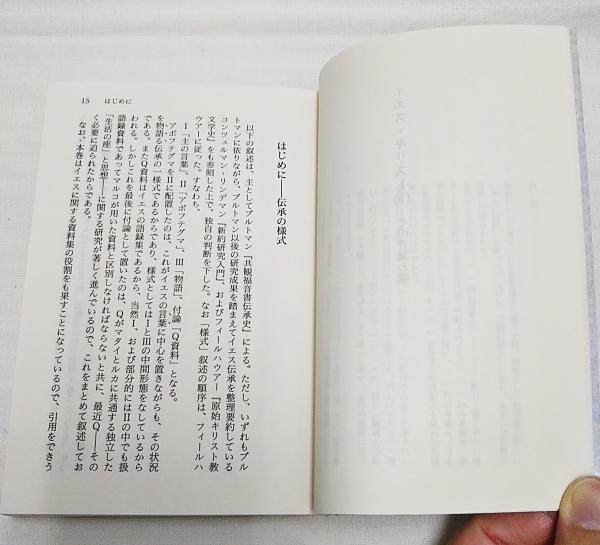 はじめに――伝承の様式
以下の叙述は、主としてブルトマン『共観福音書伝承史』による。ただし、いずれもブル
トマンに依りながら、ブルトマン以後の研究成果を踏まえてイエス伝承を整理要約している
コンツェルマン-リンデマン『新約研究入門』、およびフィールハウアー『原始キリスト教
文学史』をも参照した上で、独自の判断を下した。なお「様式」叙述の順序は、フィールハ
ウアーに従った。すなわち、
Ⅰ「主の言葉」、Ⅱ「アポフテグマ」、Ⅲ「物語」、付論「Q資料」となる。
アポフテグマをⅡに配置したのは、これがイエスの言葉に中心を置きながらも、その状況
を物語る伝承の一様式であるからであり、様式としてはⅠとⅢの中間形態をなしているから
である。またQ資料はイエスの語録集であるから、当然Ⅰ、および部分的にはⅡの中でも扱
われる。しかしこれを最後に付論として置いたのは、Qがマタイとルカに共通する独立した
語録資料であってマルコが用いた資料と区別しなければならないと共に、最近Q――その
「生活の座」と思想――に関する研究が著しく進んでいるので、これをまとめて叙述してお
く必要に迫られたからである。
なお、本巻はイエスに関する資料集の役割をも果すことになっているので、引用をできう
15 はじめに
イエス・キリスト(上)